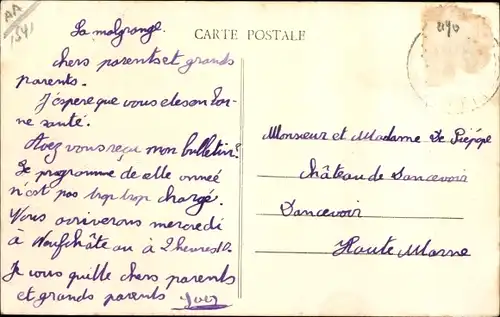 AA
1341
La malgrange.
CARTE POSTALE
490
chers parents et grands
parents.
J'espere que vous etes en bon-
ne santé.
Avez vous reçu mon bulletin?
Le programme de cette année
n'est pas trop trop chargé.
Nous arriverons mercredi
à Neufchâteau à 2 heures 10.
Je vous quitte chers parents
et grands parents Yves
Monsieur et Madame de Piépape
Château de Dancevoir
Dancevoir
Haute Marne